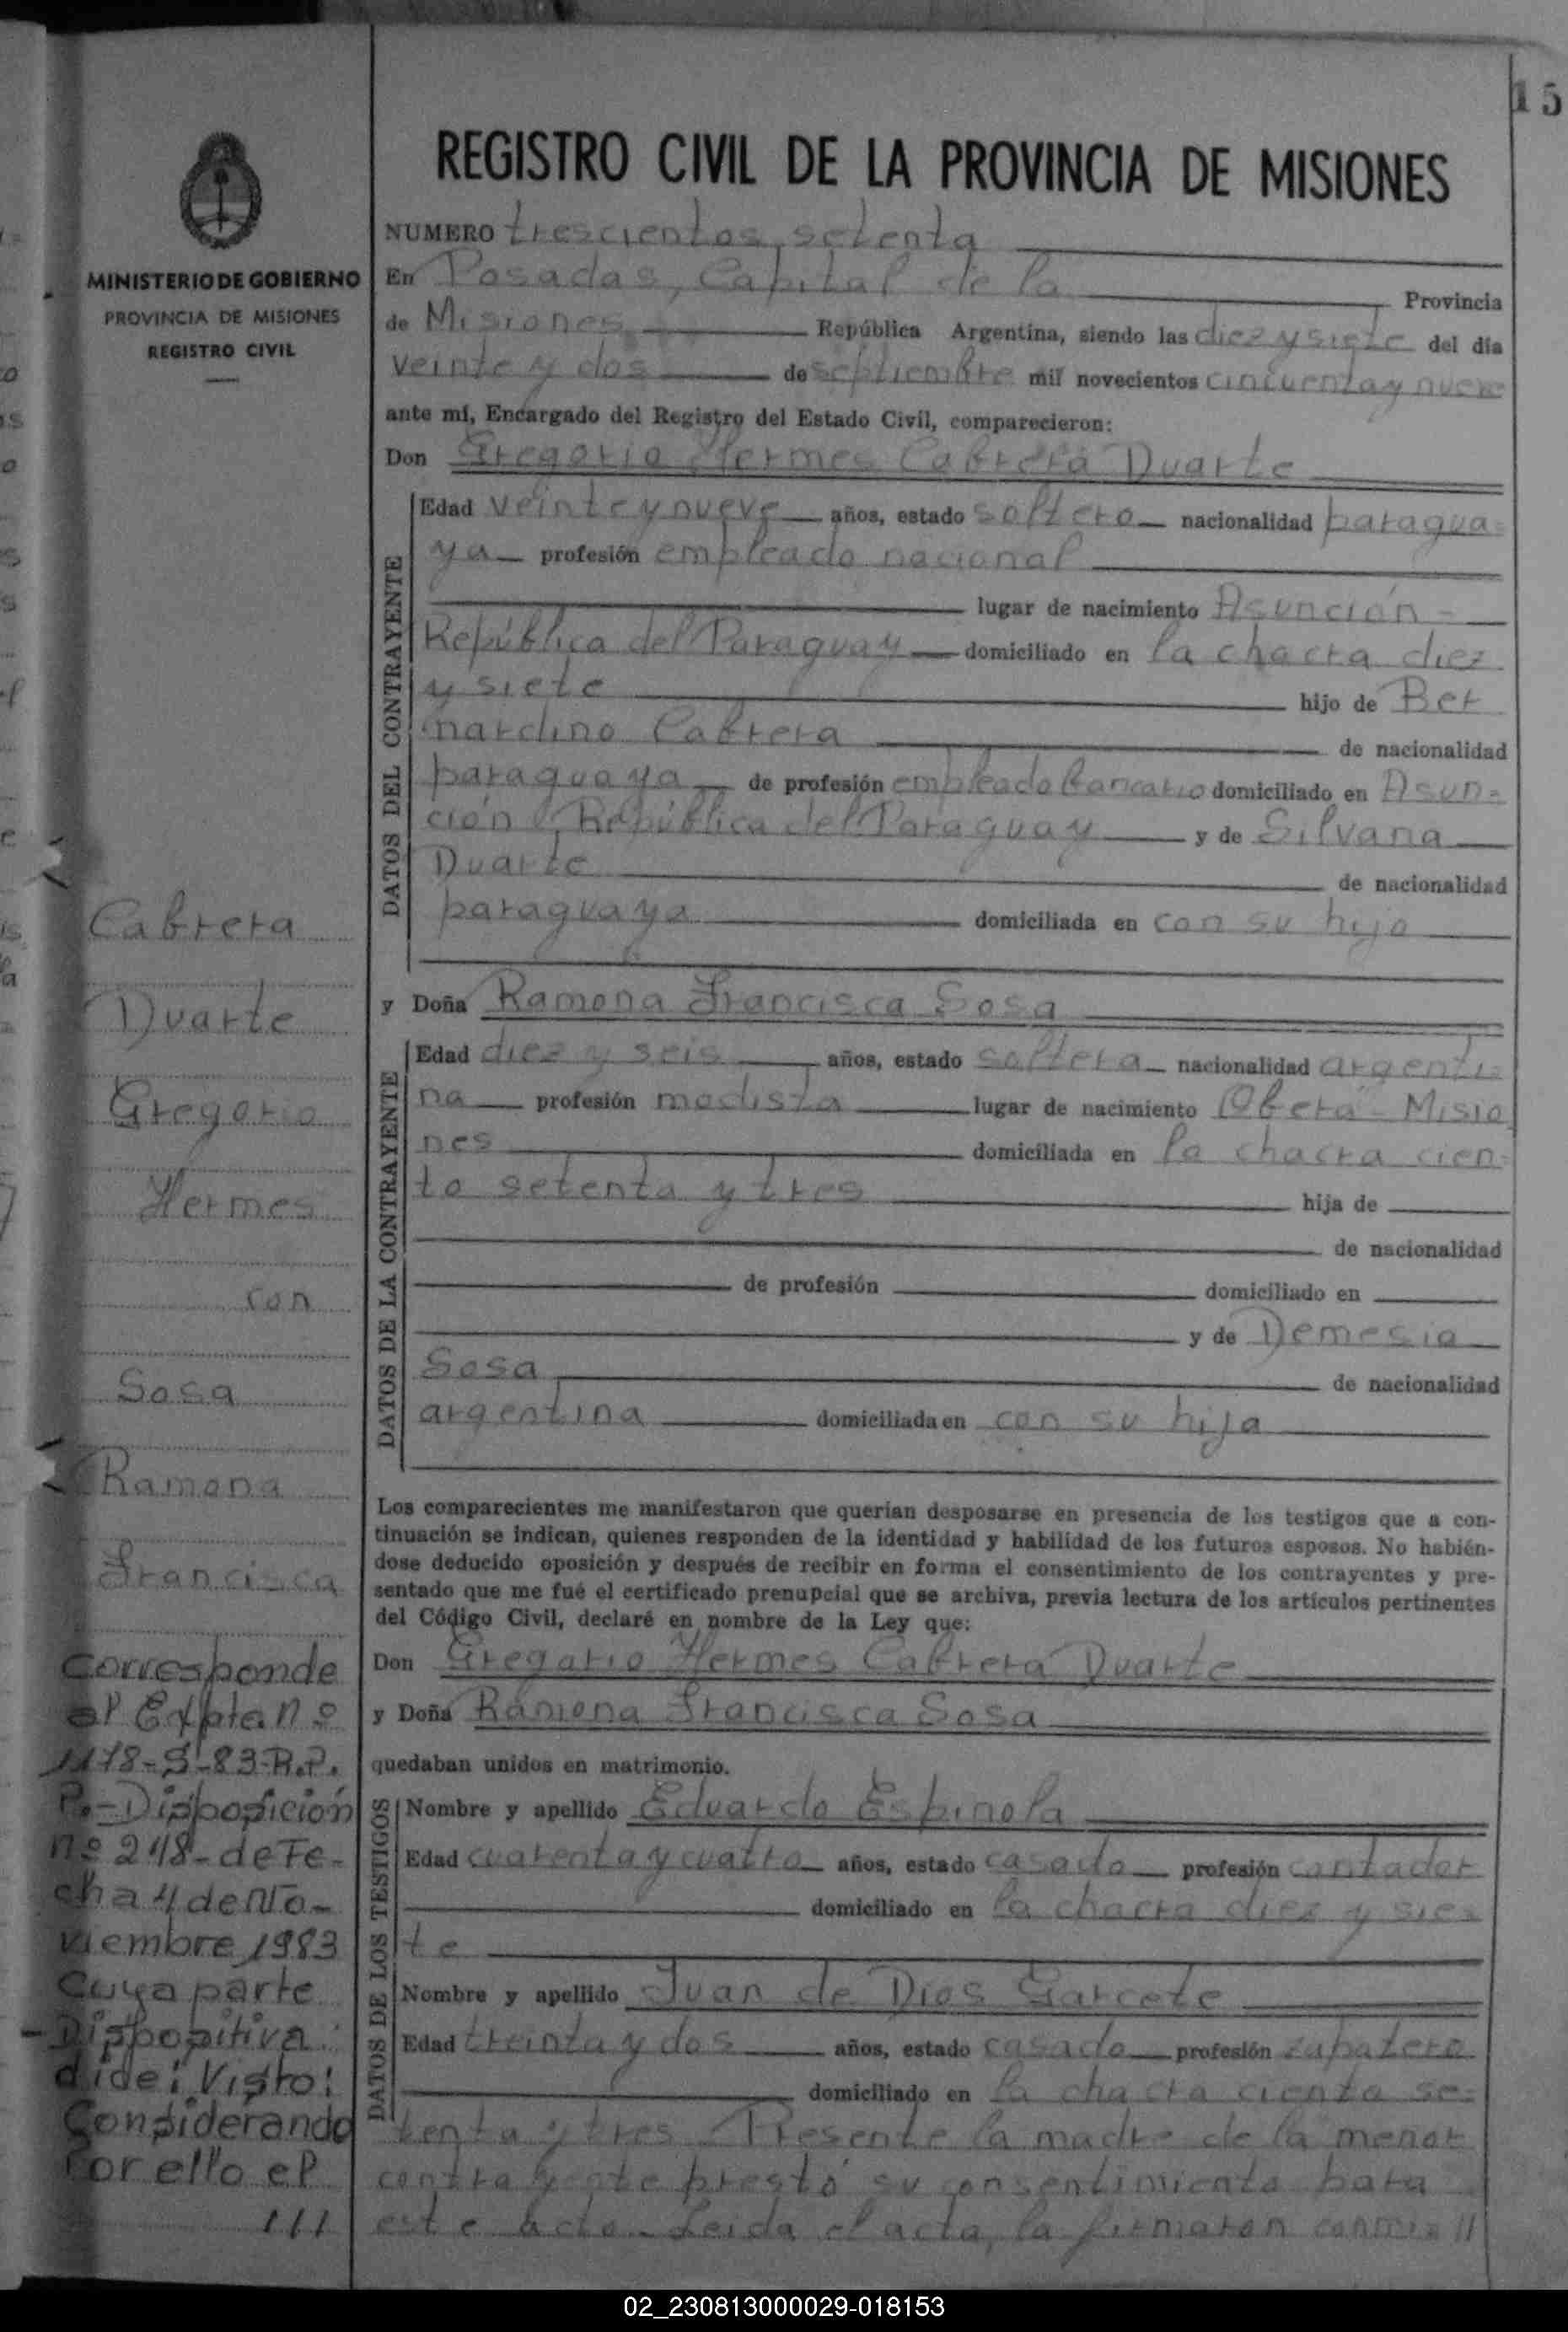 15
REGISTRO CIVIL DE LA PROVINCIA DE MISIONES
MINISTERIO DE GOBIERNO
PROVINCIA DE MISIONES
REGISTRO CIVIL
NUMERO trescientos setenta
En Posadas, Capital de la Provincia
de Misiones República Argentina, siendo las diez y siete del día
veinte y dos de septiembre mil novecientos cincuenta y nueve
ante mí, Encargado del Registro del Estado Civil, comparecieron:
Don Gregorio Hermes Cabrera Duarte
DATOS DEL CONTRAYENTE
Edad veinte y nueve años, estado soltero nacionalidad paragua=
ya profesión empleado nacional
lugar de nacimiento Asunción -
República del Paraguay domiciliado en la chacra diez
y siete hijo de Ber
nardino Cabrera de nacionalidad
paraguaya de profesión empleado bancario domiciliado en Asun=
ción, República del Paraguay y de Silvana
Duarte de nacionalidad
paraguaya domiciliada en con su hijo
y Doña Ramona Francisca Sosa
DATOS DE LA CONTRAYENTE
Edad diez y seis años, estado soltera nacionalidad argenti=
na profesión modista lugar de nacimiento Oberá - Misio
nes domiciliada en la chacra cien=
to setenta y tres hija de
de nacionalidad
de profesión domiciliado en
y de Demesia
Sosa de nacionalidad
argentina domiciliada en con su hija
Los comparecientes me manifestaron que querían desposarse en presencia de los testigos que a con-
tinuación se indican, quienes responden de la identidad y habilidad de los futuros esposos. No habién-
dose deducido oposición y después de recibir en forma el consentimiento de los contrayentes y pre-
sentado que me fué el certificado prenupcial que se archiva, previa lectura de los artículos pertinentes
del Código Civil, declaré en nombre de la Ley que:
Don Gregorio Hermes Cabrera Duarte
y Doña Ramona Francisca Sosa
quedaban unidos en matrimonio.
DATOS DE LOS TESTIGOS
Nombre y apellido Eduardo Espinola
Edad cuarenta y cuatro años, estado casado profesión contador
domiciliado en la chacra diez y sie=
te
Nombre y apellido Juan de Dios Garcete
Edad treinta y dos años, estado casado profesión zapatero
domiciliado en la chacra ciento se=
tenta y tres. Presente la madre de la menor
contrayente prestó su consentimiento para
este acto. Leida el acta, la firmaron conmi= //
Cabrera
Duarte
Gregorio
Hermes
con
Sosa
Ramona
Francisca
Corresponde
al Expte. nº
1178-S-83-R.P.
P.- Disposición
nº 248 - de Fe-
cha 4 de No-
viembre 1983
Cuya parte
Dispositiva
dice: Visto:
Considerando
Por ello el
///
02_230813000029-018153